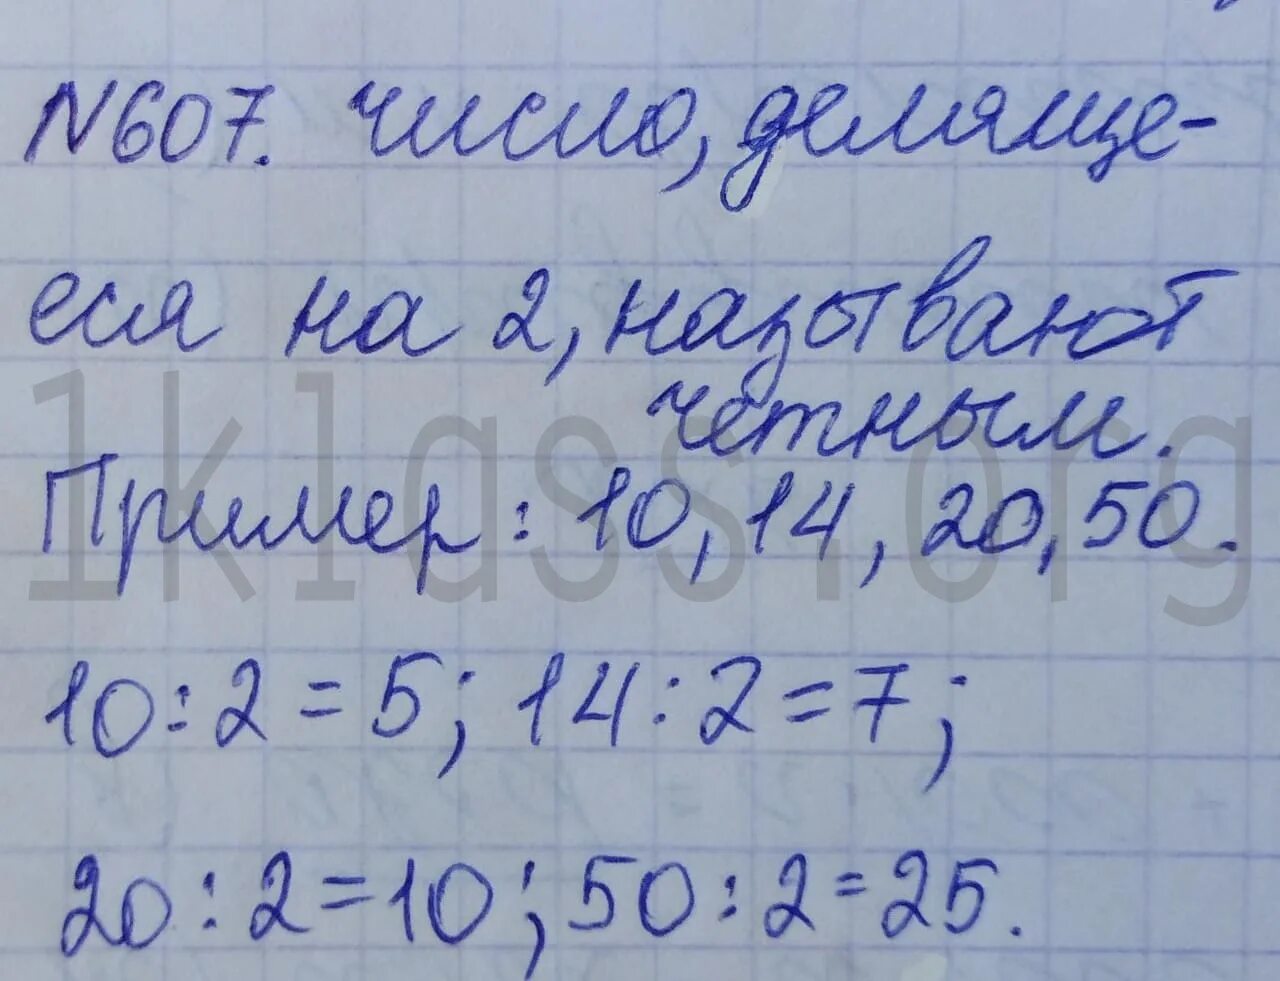 N607. число, деляще-
еся на 2, называют
чётным.
Пример: 10, 14, 20, 50.
10:2=5; 14:2=7;
20:2=10; 50:2=25.
1klass.org